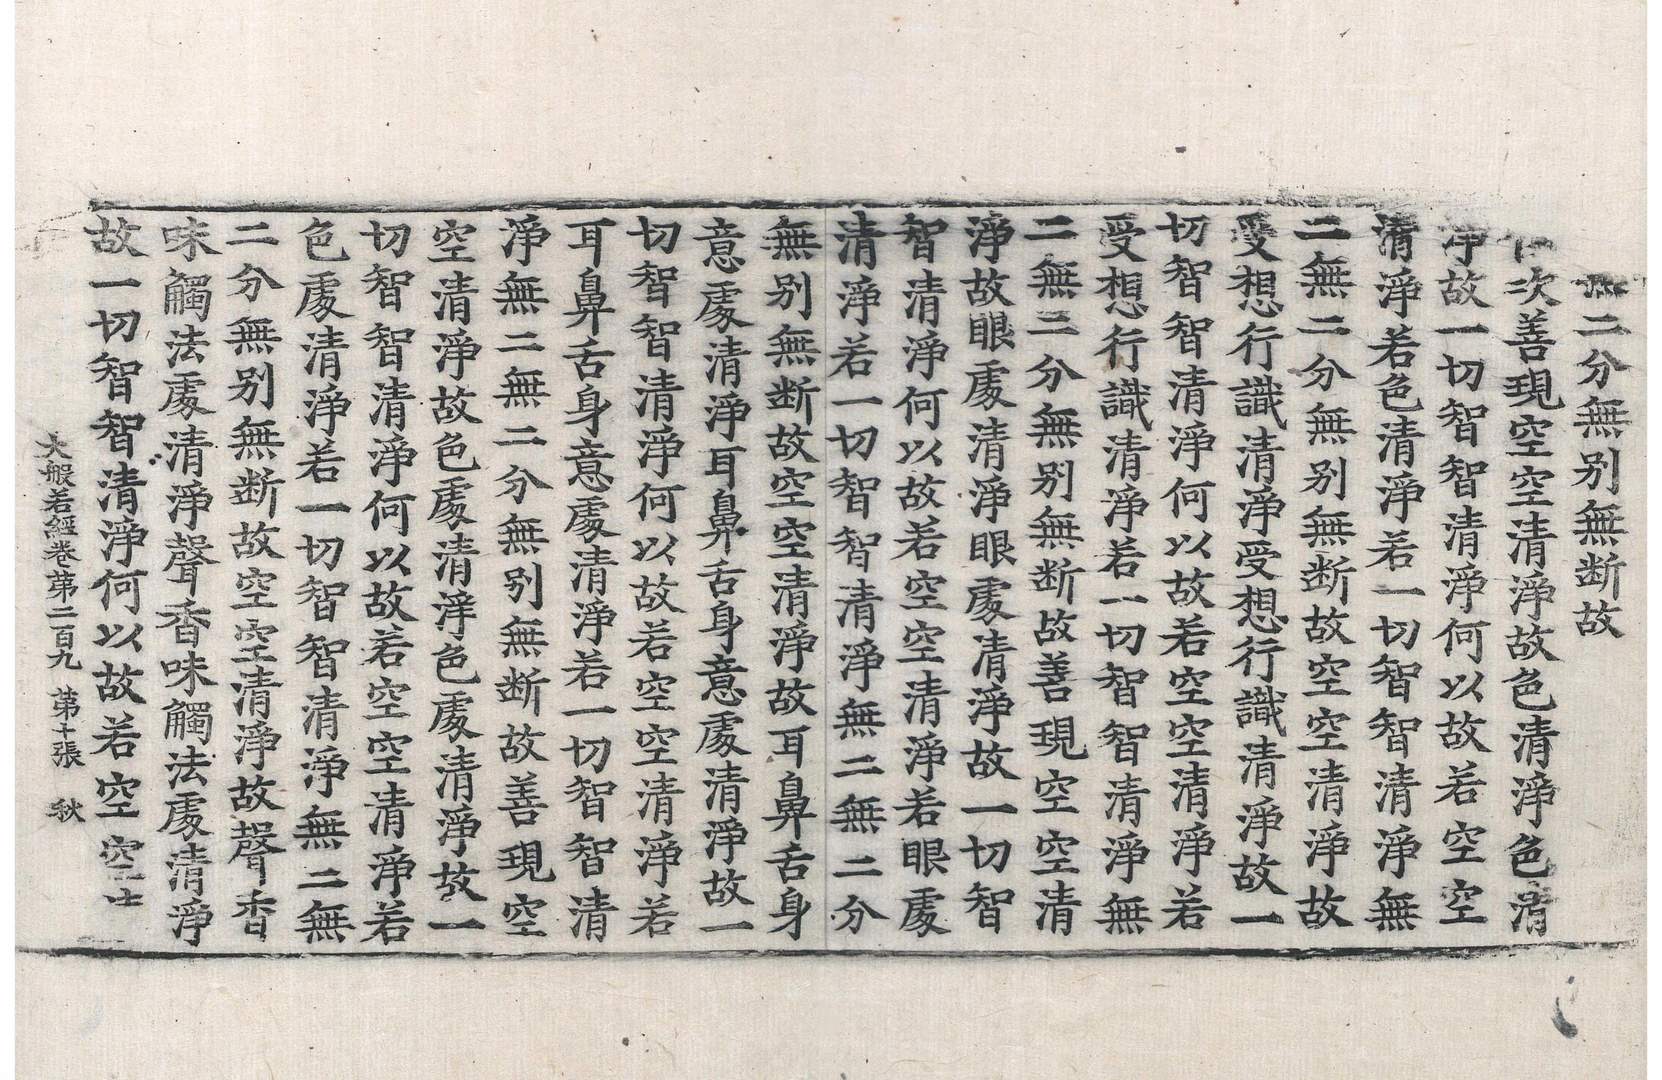 二分無別無断故
次善現空空清淨故色清淨色清
淨故一切智智清淨何以故若空空
清淨若色清淨若一切智智清淨無
二無二分無別無断故空空清淨故
受想行識清淨受想行識清淨故一
切智智清淨何以故若空空清淨若
受想行識清淨若一切智智清淨無
二無二分無別無断故善現空空清
淨故眼處清淨眼處清淨故一切智
智清淨何以故若空空清淨若眼處
清淨若一切智智清淨無二無二分
無別無断故空空清淨故耳鼻舌身
意處清淨耳鼻舌身意處清淨故一
切智智清淨何以故若空空清淨若
耳鼻舌身意處清淨若一切智智清
淨無二無二分無別無断故善現空
空清淨故色處清淨色處清淨故一
切智智清淨何以故若空空清淨若
色處清淨若一切智智清淨無二無
二分無別無断故空空清淨故聲香
味觸法處清淨聲香味觸法處清淨
故一切智智清淨何以故若空空
大般若經卷第二百九 第十張 秋